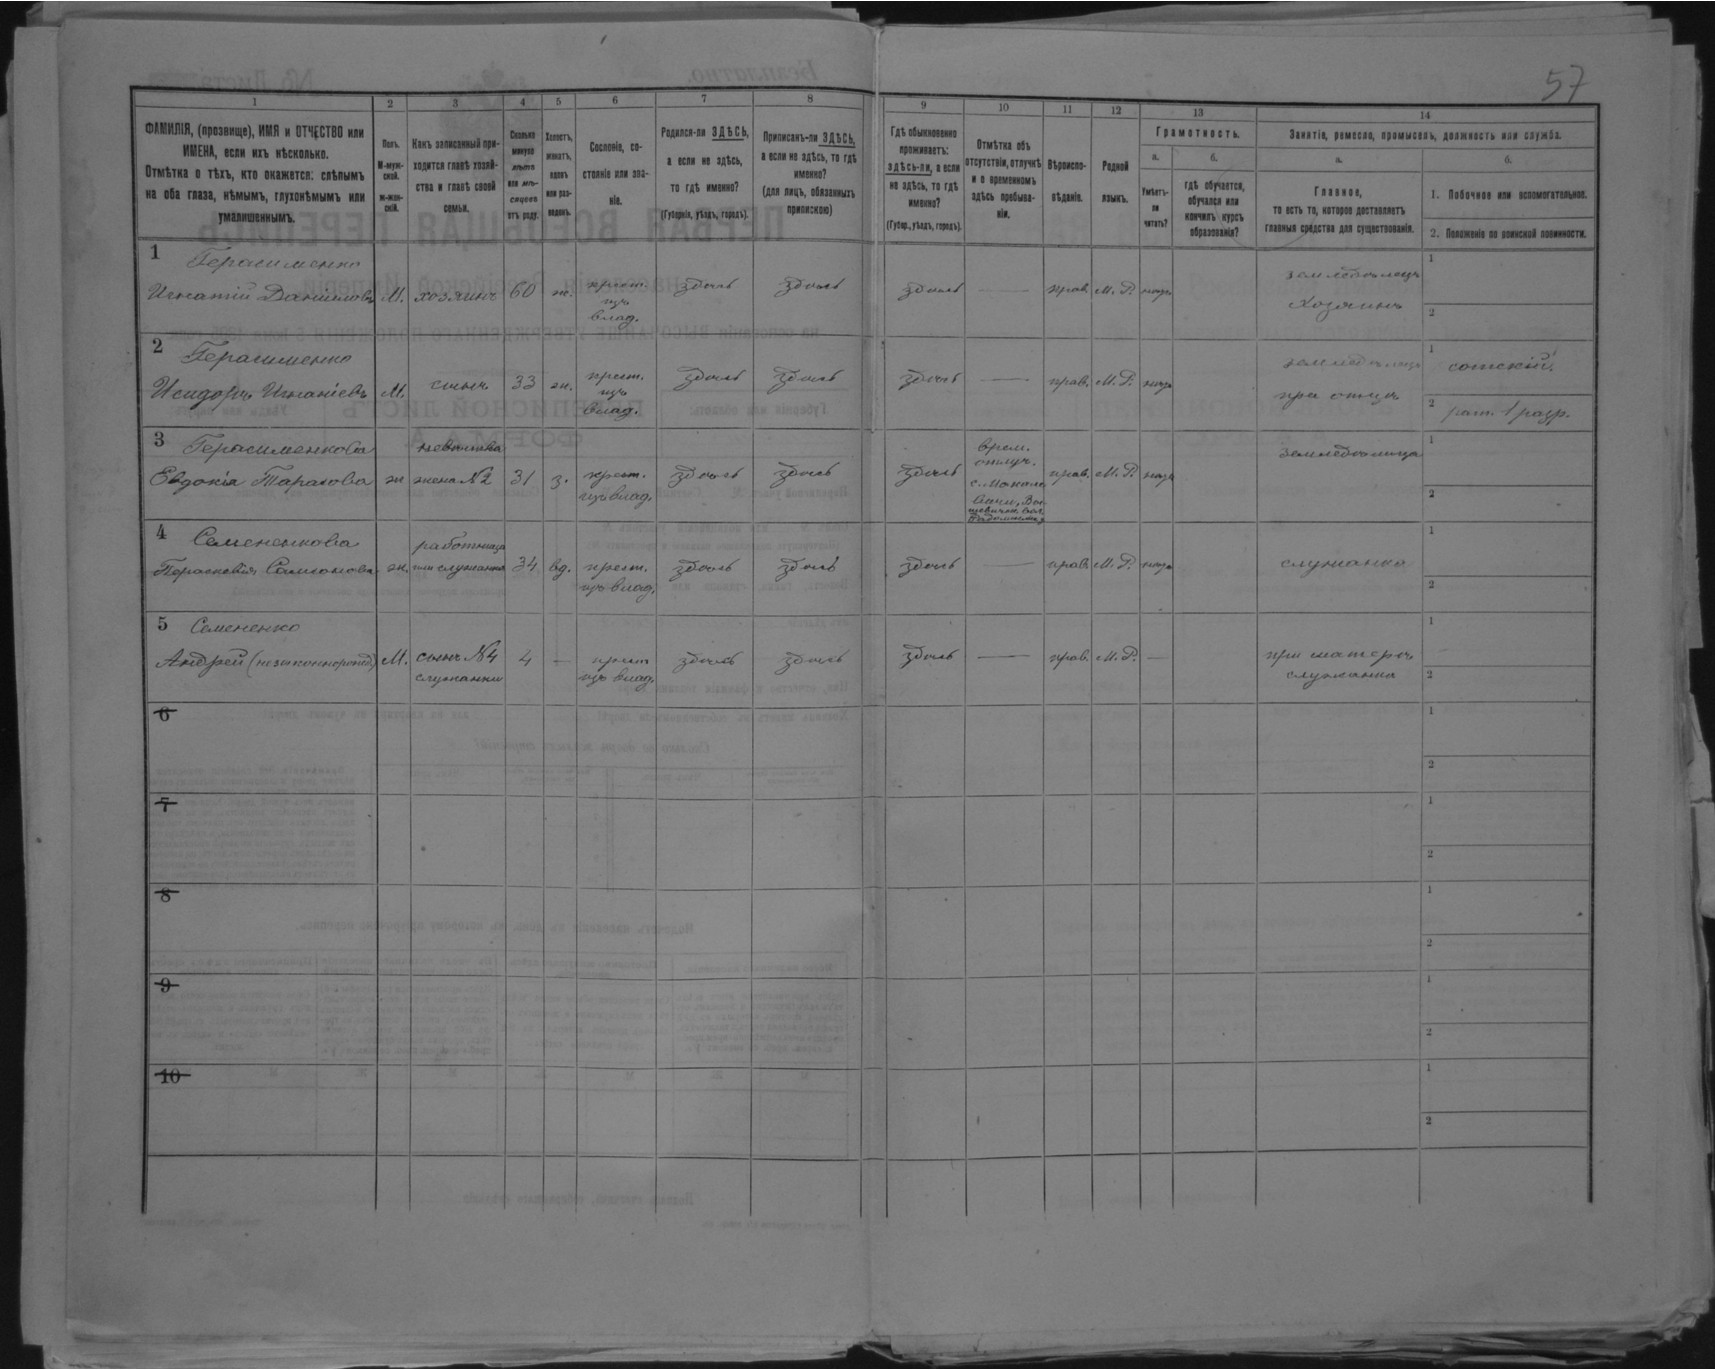 57
1 2 3 4 5 6 7 8 9 10 11 12 13 14
ФАМИЛІЯ, (прозвище), ИМЯ и ОТЧЕСТВО или
ИМЕНА, если ихъ нѣсколько.
Отмѣтка о тѣхъ, кто окажется: слѣпымъ
на оба глаза, нѣмымъ, глухонѣмымъ или
умалишеннымъ.
Полъ.
М-муж-
ской.
ж-жен-
скій.
Какъ записанный при-
ходится главѣ хозяй-
ства и главѣ своей
семьи.
Сколько
минуло
лѣтъ
или мѣ-
сяцевъ
отъ роду.
Холостъ,
женатъ,
вдовъ
или раз-
веденъ.
Сословіе, со-
стояніе или зва-
ніе.
Родился-ли ЗДѢСЬ,
а если не здѣсь,
то гдѣ именно?
(Губернія, уѣздъ, городъ).
Приписанъ-ли ЗДѢСЬ,
а если не здѣсь, то гдѣ
именно?
(для лицъ, обязанныхъ
припискою)
Гдѣ обыкновенно
проживаетъ:
здѣсь-ли, а если
не здѣсь, то гдѣ
именно?
(Губер., уѣздъ, городъ).
Отмѣтка объ
отсутствіи, отлучкѣ
и о временномъ
здѣсь пребыва-
ніи.
Вѣроиспо-
вѣданіе.
Родной
языкъ.
Грамотность.
а.
Умѣетъ-
ли
читать?
б.
гдѣ обучается,
обучался или
кончилъ курсъ
образованія?
Занятіе, ремесло, промыселъ, должность или служба.
а.
Главное,
то есть то, которое доставляетъ
главныя средства для существованія.
б.
1. Побочное или вспомогательное.
2. Положеніе по воинской повинности.
1
Герасименко
Игнатій Даниловъ М. хозяинъ 60 ж. крест. изъ влад. здѣсь здѣсь здѣсь — прав. М.Р. нѣтъ
земледѣлецъ
хозяинъ
1
2
2
Герасименко
Исидоръ Игнатіевъ М. сынъ 33 ж. крест. изъ влад. здѣсь здѣсь здѣсь — прав. М.Р. нѣтъ
земледѣлецъ
при отцѣ
1 сотскій.
2 рат. 1 разр.
3
Герасименкова
Евдокія Тарасова ж
невѣстка
жена №2 31 з. крест. изъ влад. здѣсь здѣсь здѣсь
врем.
отлуч.
прав. М.Р. нѣтъ
земледѣлица
1
2
4
Семененкова
Параскевія Самсонова ж.
работница
или служанка 34 вд. крест. изъ влад. здѣсь здѣсь здѣсь — прав. М.Р. нѣтъ
служанка
1
2
5
Семененко
Андрей (незаконнорожд) М. сынъ №4
служанки 4 — крест изъ влад. здѣсь здѣсь здѣсь — прав. М.Р. —
при матери
служанка
1
2
6
1
2
7
1
2
8
1
2
9
1
2
10
1
2